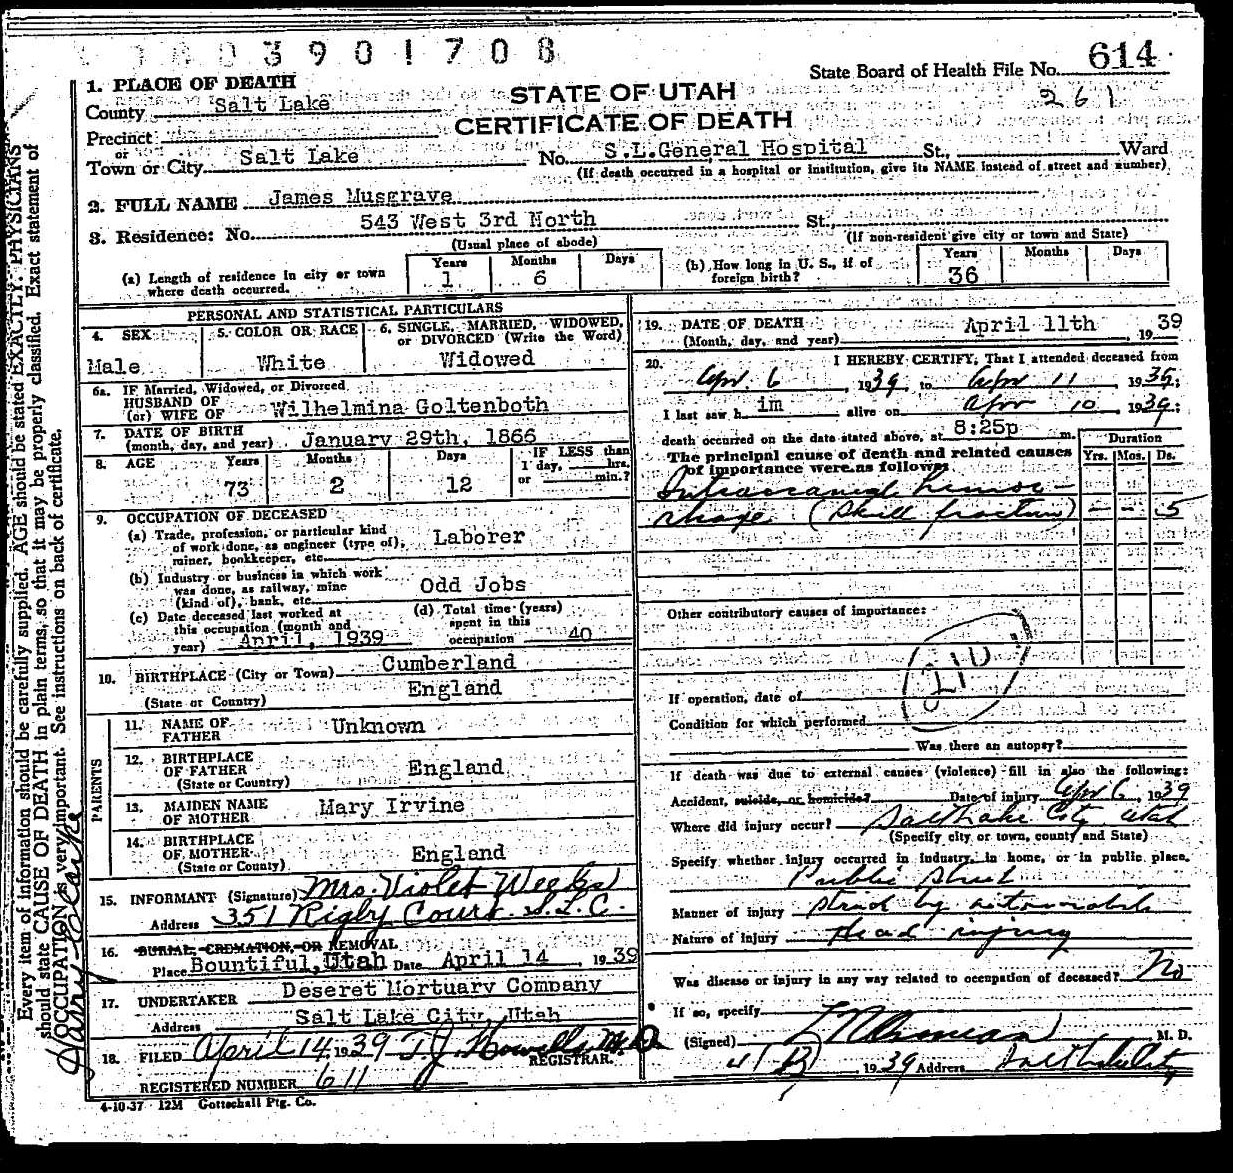 03901708
State Board of Health File No. 614
261
1. PLACE OF DEATH
County Salt Lake
STATE OF UTAH
CERTIFICATE OF DEATH
Precinct
or
Town or City Salt Lake No. S.L.General Hospital St., Ward
(If death occurred in a hospital or institution, give its NAME instead of street and number)
2. FULL NAME James Musgrave
3. Residence: No. 543 West 3rd North St.,
(Usual place of abode) (If non-resident give city or town and State)
(a) Length of residence in city or town where death occurred. Years 1 Months 6 Days
(b) How long in U. S., if of foreign birth? Years 36 Months Days
PERSONAL AND STATISTICAL PARTICULARS
4. SEX Male
5. COLOR OR RACE White
6. SINGLE, MARRIED, WIDOWED, or DIVORCED (Write the Word) Widowed
6a. IF Married, Widowed, or Divorced
HUSBAND OF
(or) WIFE OF Wilhelmina Goltenboth
7. DATE OF BIRTH
(month, day, and year) January 29th, 1866
8. AGE Years 73 Months 2 Days 12 IF LESS than 1 day, hrs. or min.?
9. OCCUPATION OF DECEASED
(a) Trade, profession, or particular kind of work done, as engineer (type of), miner, bookkeeper, etc. Laborer
(b) Industry or business in which work was done, as railway, mine (kind of), bank, etc. Odd Jobs
(c) Date deceased last worked at this occupation (month and year) April, 1939
(d) Total time (years) spent in this occupation 40
10. BIRTHPLACE (City or Town) Cumberland
(State or Country) England
PARENTS
11. NAME OF FATHER Unknown
12. BIRTHPLACE OF FATHER England
(State or Country)
13. MAIDEN NAME OF MOTHER Mary Irvine
14. BIRTHPLACE OF MOTHER England
(State or County)
15. INFORMANT (Signature) Mrs. Violet Weeks
Address 351 Rigby Court S.L.C.
16. BURIAL, CREMATION, OR REMOVAL
Place Bountiful, Utah Date April 14, 1939
17. UNDERTAKER Deseret Mortuary Company
Address Salt Lake City, Utah
18. FILED April 14 1939 T.J. Howells M.D.
REGISTRAR.
REGISTERED NUMBER 611
4-10-37 12M Gottschall Ptg. Co.
19. DATE OF DEATH
(Month, day, and year) April 11th, 1939
20. I HEREBY CERTIFY, That I attended deceased from
Apr. 6, 1939 to Apr 11, 1939;
I last saw him alive on Apr 10 1939;
death occurred on the date stated above, at 8:25p m.
The principal cause of death and related causes of importance were as follows:
Duration
Yrs. Mos. Ds.
Intracranial hemor-
rhage (Skull fracture) - - 5
Other contributory causes of importance:
210
If operation, date of
Condition for which performed
Was there an autopsy?
If death was due to external causes (violence) fill in also the following:
Accident, suicide, or homicide? Date of injury Apr 6, 1939
Where did injury occur? Salt Lake City Utah
(Specify city or town, county and State)
Specify whether injury occurred in industry, in home, or in public place.
Public Street
Manner of injury Struck by automobile
Nature of injury Head injury
Was disease or injury in any way related to occupation of deceased? No
If so, specify
(Signed) M. D.
1939 Address Salt Lake City
Every item of information should be carefully supplied. AGE should be stated EXACTLY. PHYSICIANS
should state CAUSE OF DEATH in plain terms, so that it may be properly classified. Exact statement of
OCCUPATION is very important. See instructions on back of certificate.